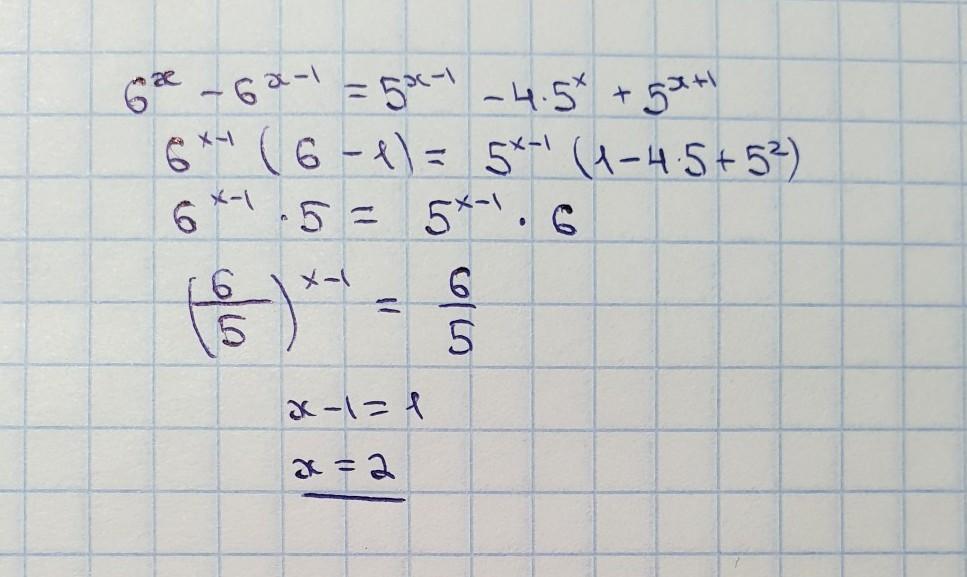 6^x - 6^(x-1) = 5^(x-1) - 4·5^x + 5^(x+1)
6^(x-1) (6 - 1) = 5^(x-1) (1 - 4·5 + 5²)
6^(x-1) · 5 = 5^(x-1) · 6
(6/5)^(x-1) = 6/5
x - 1 = 1
x = 2